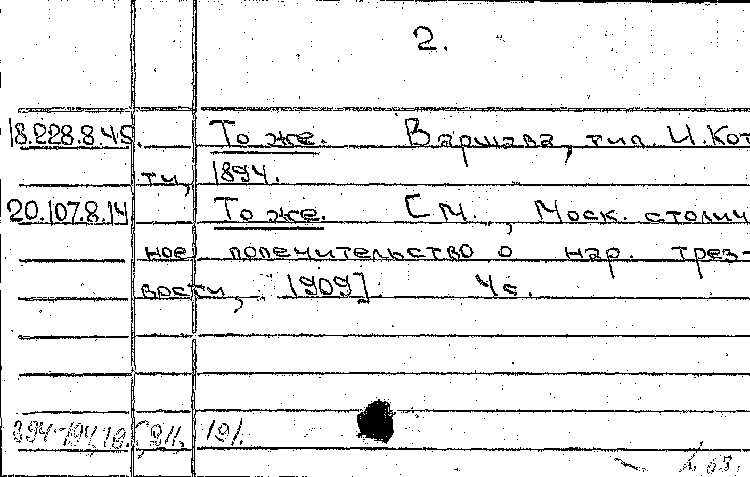 2.
18.228.8.45. То же. Варшава, тип. И. Кот
ти, 1894.
20.107.8.14 То же. [М., Моск. столич
ное попечительство о нар. трез-
вости, 1909] 4с.